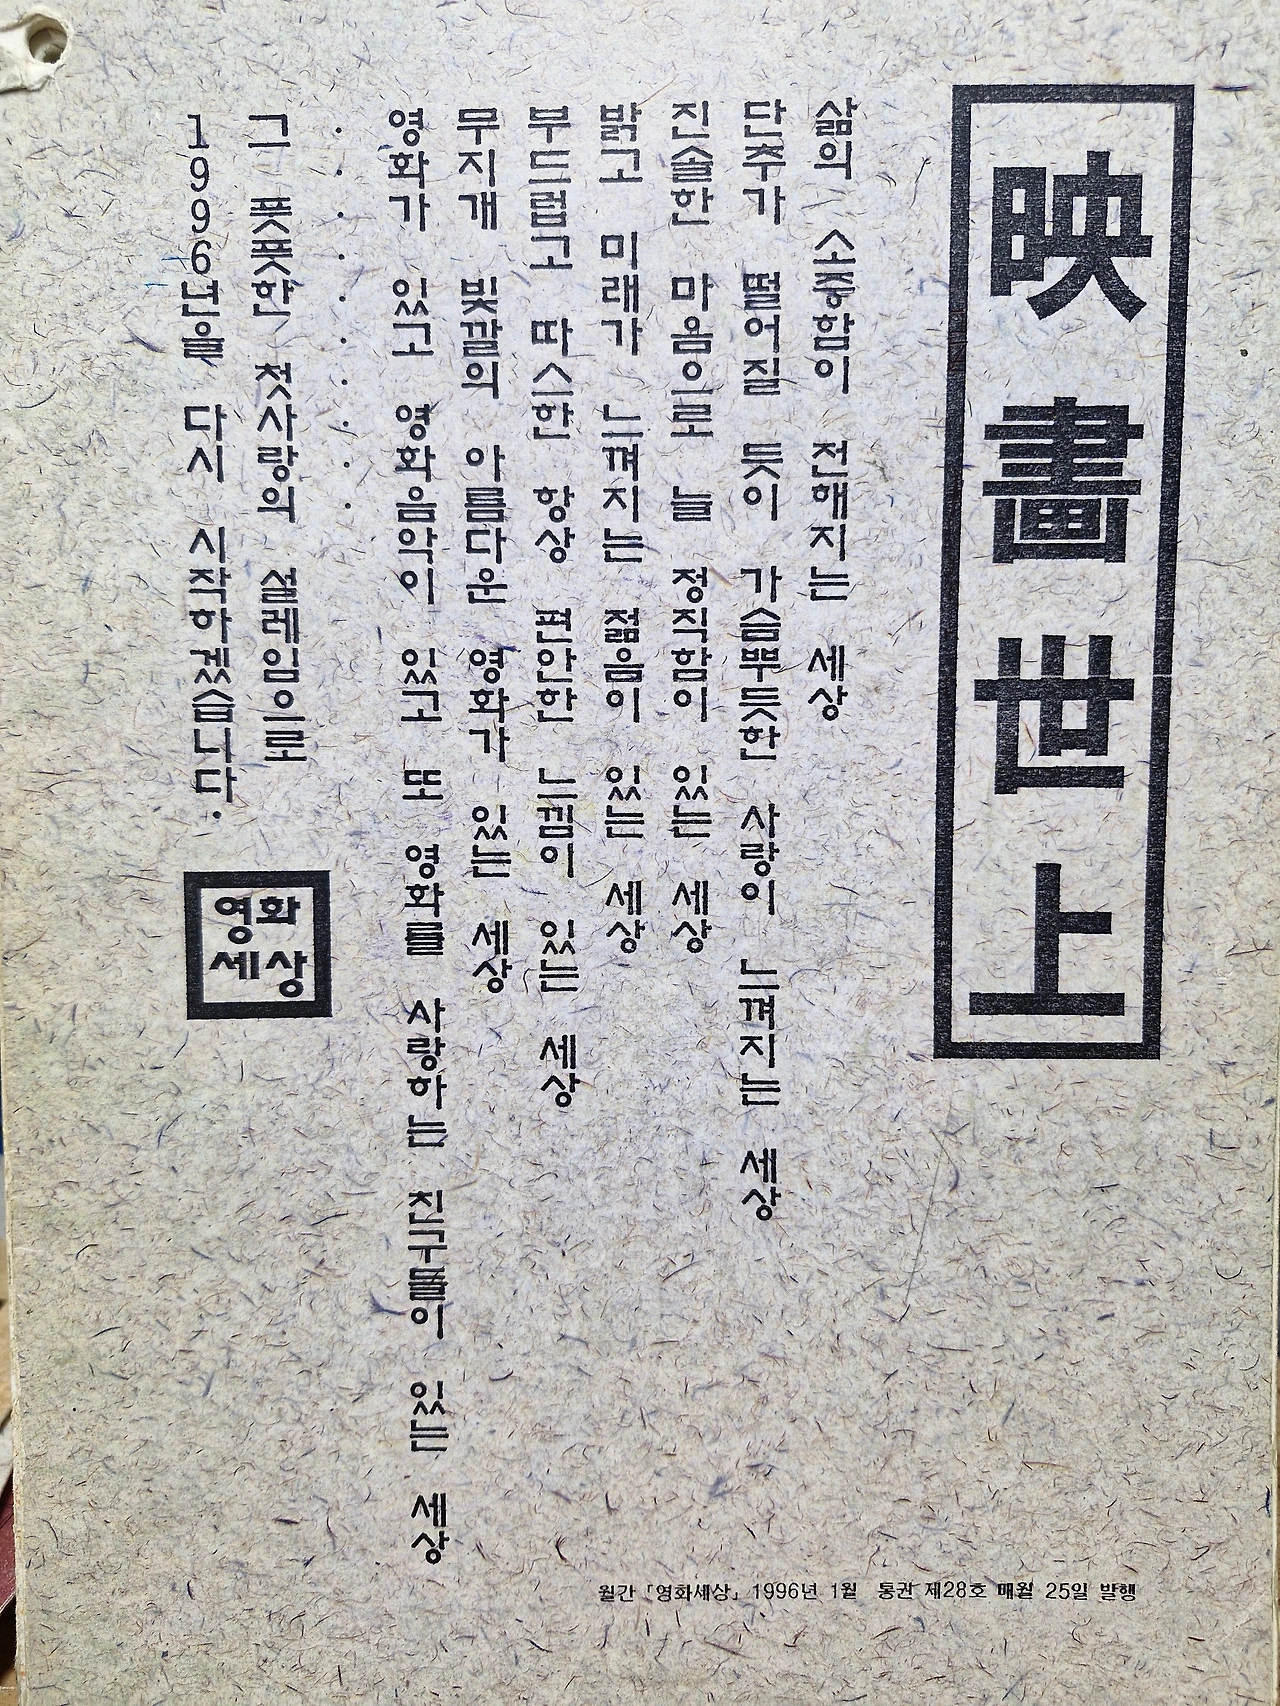 映畵世上
삶의 소중함이 전해지는 세상
단추가 떨어질 듯이 가슴뿌듯한 사랑이 느껴지는 세상
진솔한 마음으로 늘 정직함이 있는 세상
밝고 미래가 느껴지는 젊음이 있는 세상
부드럽고 따스한 항상 편안한 느낌이 있는 세상
무지개 빛깔의 아름다운 영화가 있는 세상
영화가 있고 영화음악이 있고 또 영화를 사랑하는 친구들이 있는 세상
··········
그 풋풋한 첫사랑의 설레임으로
1996년을 다시 시작하겠습니다.
영화
세상
월간 「영화세상」 1996년 1월 통권 제28호 매월 25일 발행